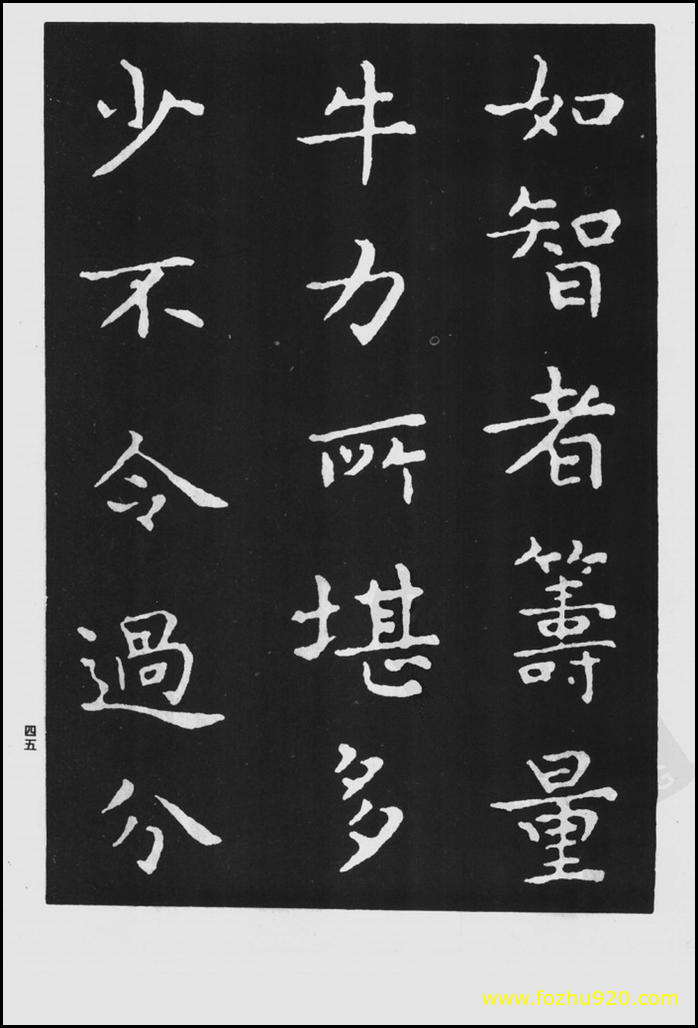 如智者籌量
牛力所堪多
少不令過分
四五
www.fozhu920.com